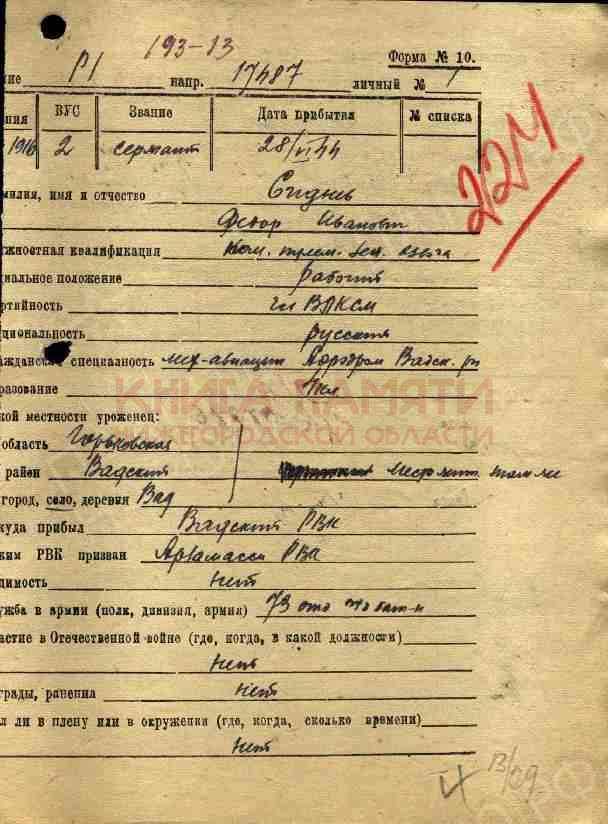 193-13
Форма № 10.
ние Р1 напр. 17487 личный №
ния ВУС Звание Дата прибытия № списка
1916 2 сержант 28/VI 44
224
милия, имя и отчество
Федор Иванович
жностная квалификация
циальное положение рабочий
ртийность чл ВЛКСМ
циональность русский
ажданская специалность мех-авиации Аэродром Вадск. рн
разование 7кл
КНИГА ПАМЯТИ
НИЖЕГОРОДСКОЙ ОБЛАСТИ
кой местности уроженец:
область Горьковская
район Вадский место жит. там же
город, село, деревня Вад
куда прибыл Вадский РВК
ким РВК призван РВК
димость нет
ужба в армии (полк, дивизия, армия) 73
астие в Отечественной войне (где, когда, в какой должности)
нет
грады, ранения нет
л ли в плену или в окружении (где, когда, сколько времени)
нет
13/09